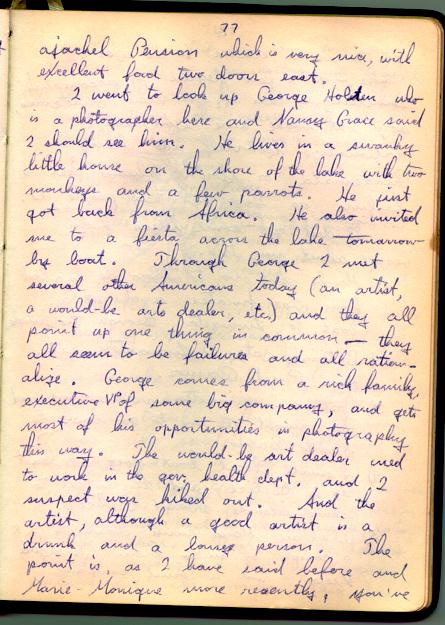 77
ajachel Pension which is very nice, with
excellent food two doors east.
I went to look up George Holsten who
is a photographer here and Nancy Grace said
I should see him. He lives in a swanky
little house on the shore of the lake with two
monkeys and a few parrots. He just
got back from Africa. He also invited
me to a fiesta across the lake tomorrow
by boat. Through George I met
several other Americans today (an artist,
a would-be arts dealer, etc) and they all
point up one thing in common — they
all seem to be failures and all ration-
alize. George comes from a rich family,
executive VP of some big company, and gets
most of his opportunities in photography
this way. The would-be art dealer used
to work in the gov. health dept. and I
suspect was kiked out. And the
artist, although a good artist is a
drunk and a lousy person. The
point is, as I have said before and
Marie-Monique more recently, you've